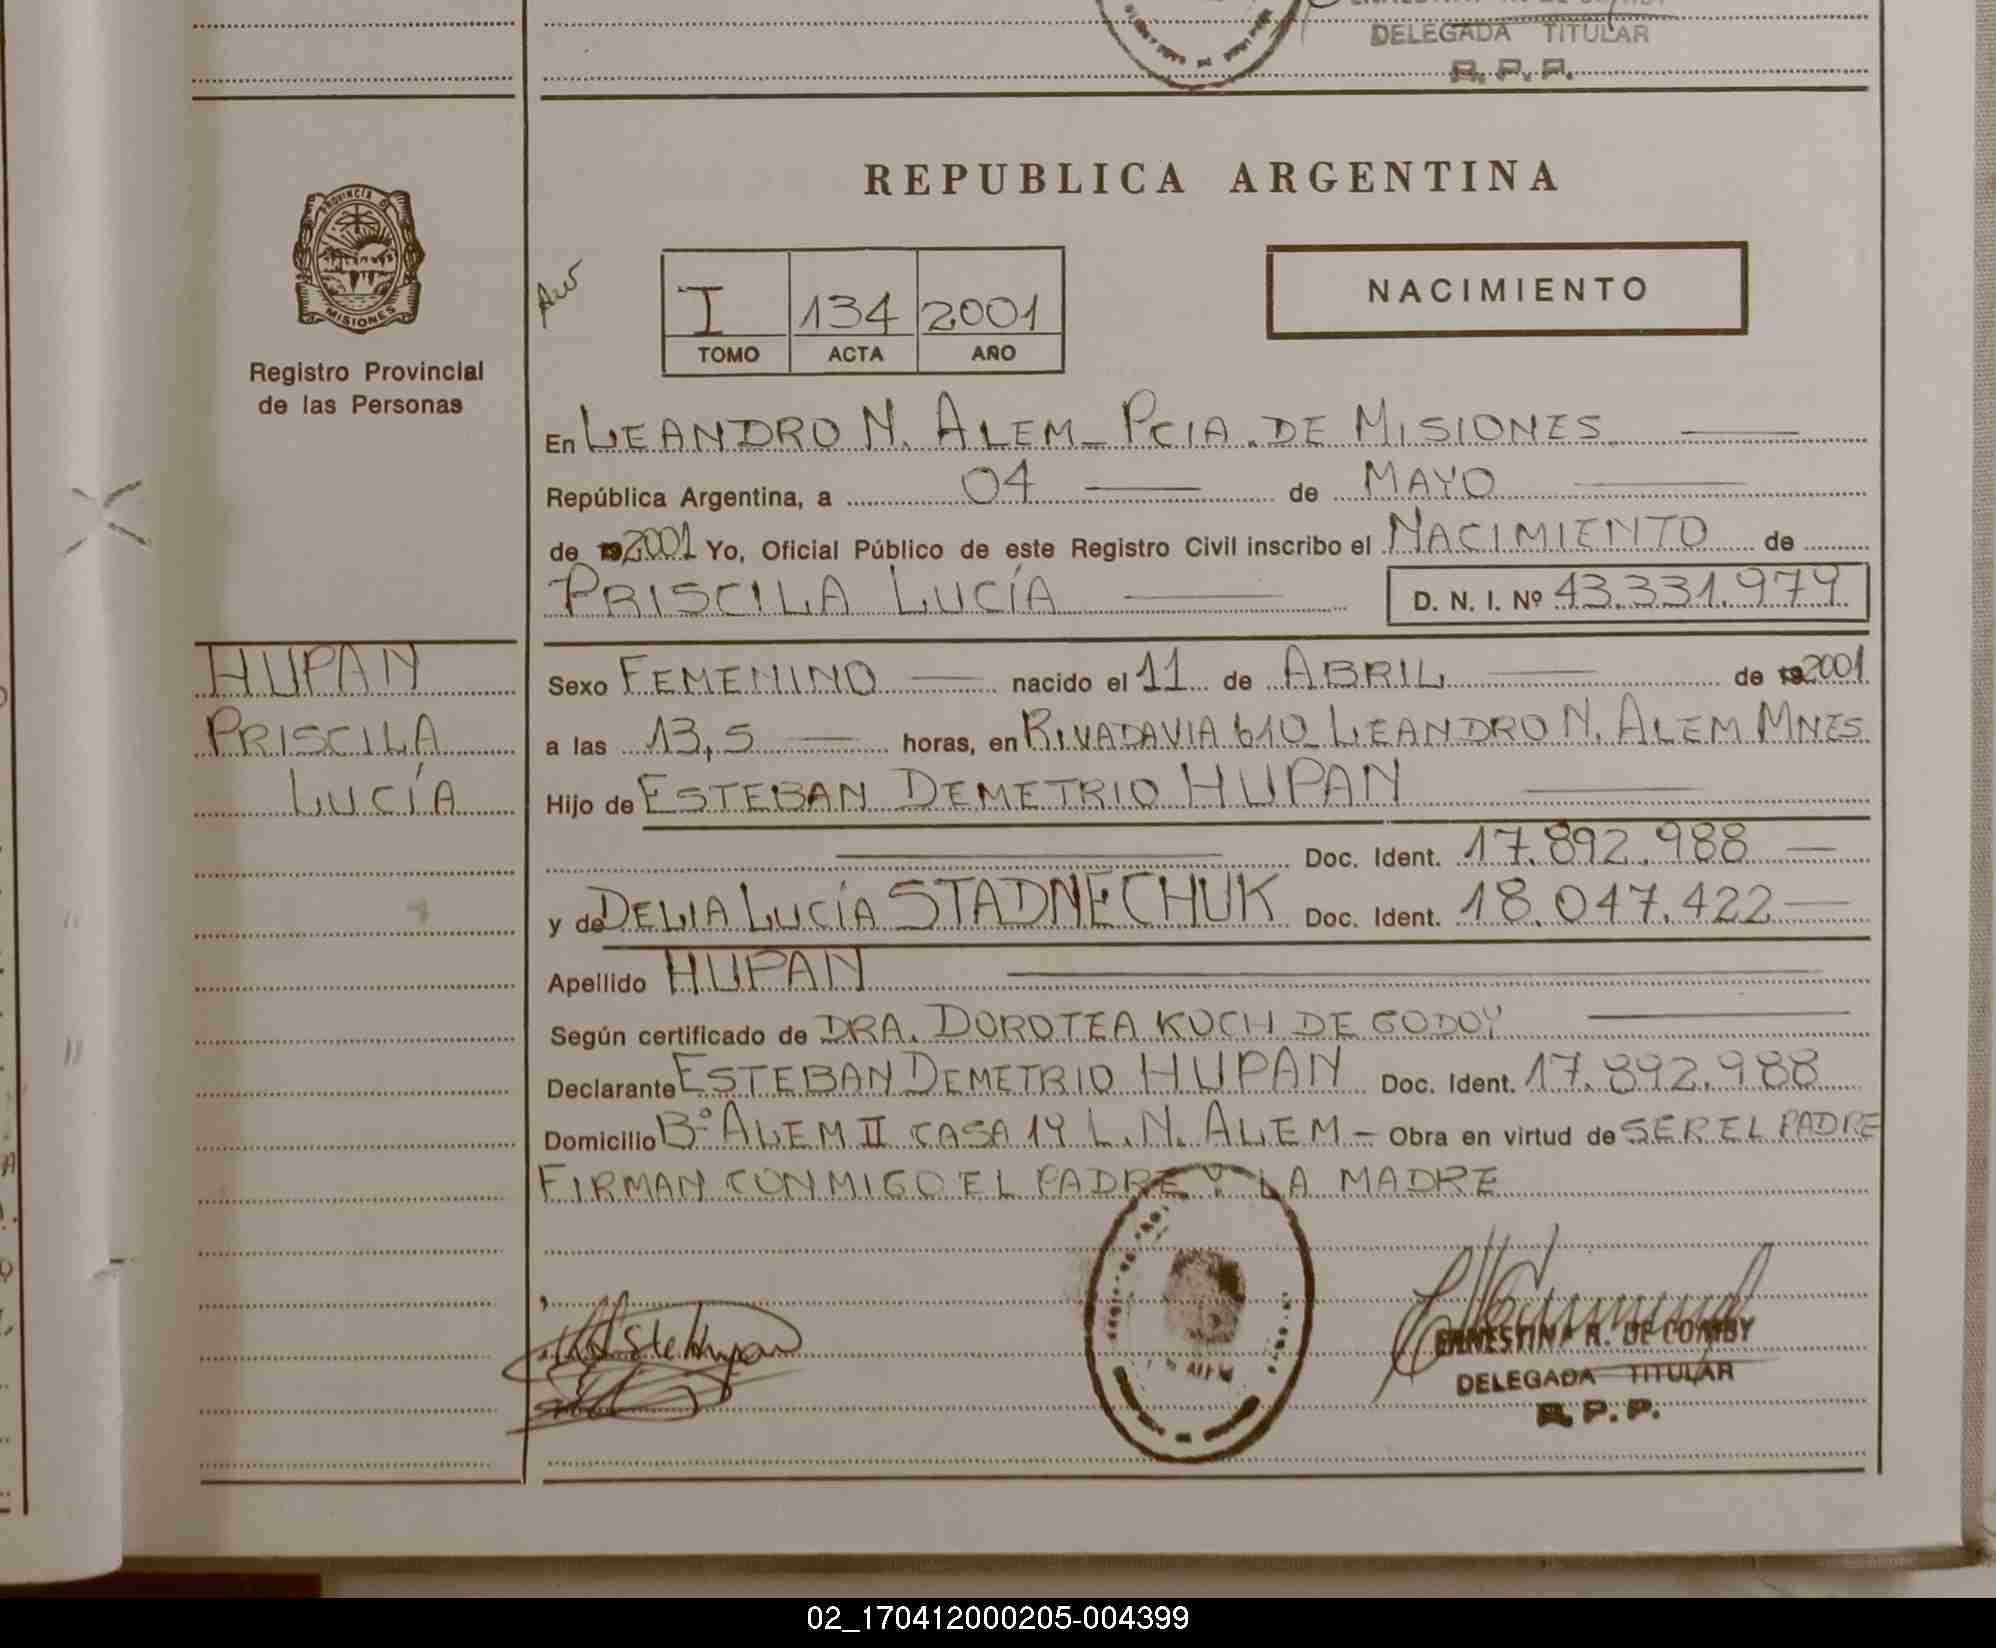 DELEGADA TITULAR
R. P. P.
PROVINCIA D
MISIONES
Registro Provincial
de las Personas
REPUBLICA ARGENTINA
I 134 2001
TOMO ACTA AÑO
NACIMIENTO
En LEANDRO N. ALEM_ PCIA. DE MISIONES
República Argentina, a 04 de MAYO
de 2001 Yo, Oficial Público de este Registro Civil inscribo el NACIMIENTO de
PRISCILA LUCÍA D. N. I. Nº 43.331.979
HUPAN
PRISCILA
LUCÍA
Sexo FEMENINO nacido el 11 de ABRIL de 2001
a las 13,5 horas, en RIVADAVIA 610_ LEANDRO N. ALEM MNES
Hijo de ESTEBAN DEMETRIO HUPAN
Doc. Ident. 17.892.988
y de DELIA LUCÍA STADNECHUK Doc. Ident. 18.047.422
Apellido HUPAN
Según certificado de DRA. DOROTEA KOCH DE GODOY
Declarante ESTEBAN DEMETRIO HUPAN Doc. Ident. 17.892.988
Domicilio Bº ALEM II CASA 19 L.N. ALEM - Obra en virtud de SER EL PADRE
FIRMAN CONMIGO EL PADRE Y LA MADRE
ERNESTINA R. DE COMBY
DELEGADA TITULAR
R. P. P.
02_170412000205-004399